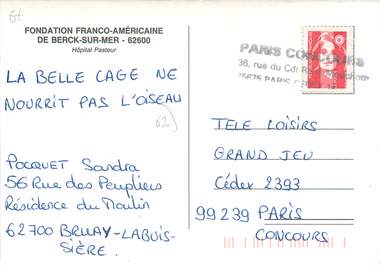 FONDATION FRANCO-AMÉRICAINE
DE BERCK-SUR-MER - 62600
Hôpital Pasteur
LA BELLE CAGE NE
NOURRIT PAS L'OISEAU
62
POCQUET Sandra
56 Rue des Peupliers
Résidence du Moulin
62700 BRUAY-LABUIS-
SIÈRE.
PARIS CONCOURS
36, rue du Cdt
75675 PARIS
TELE LOISIRS
GRAND JEU
Cédex 2393
99239 PARIS
CONCOURS